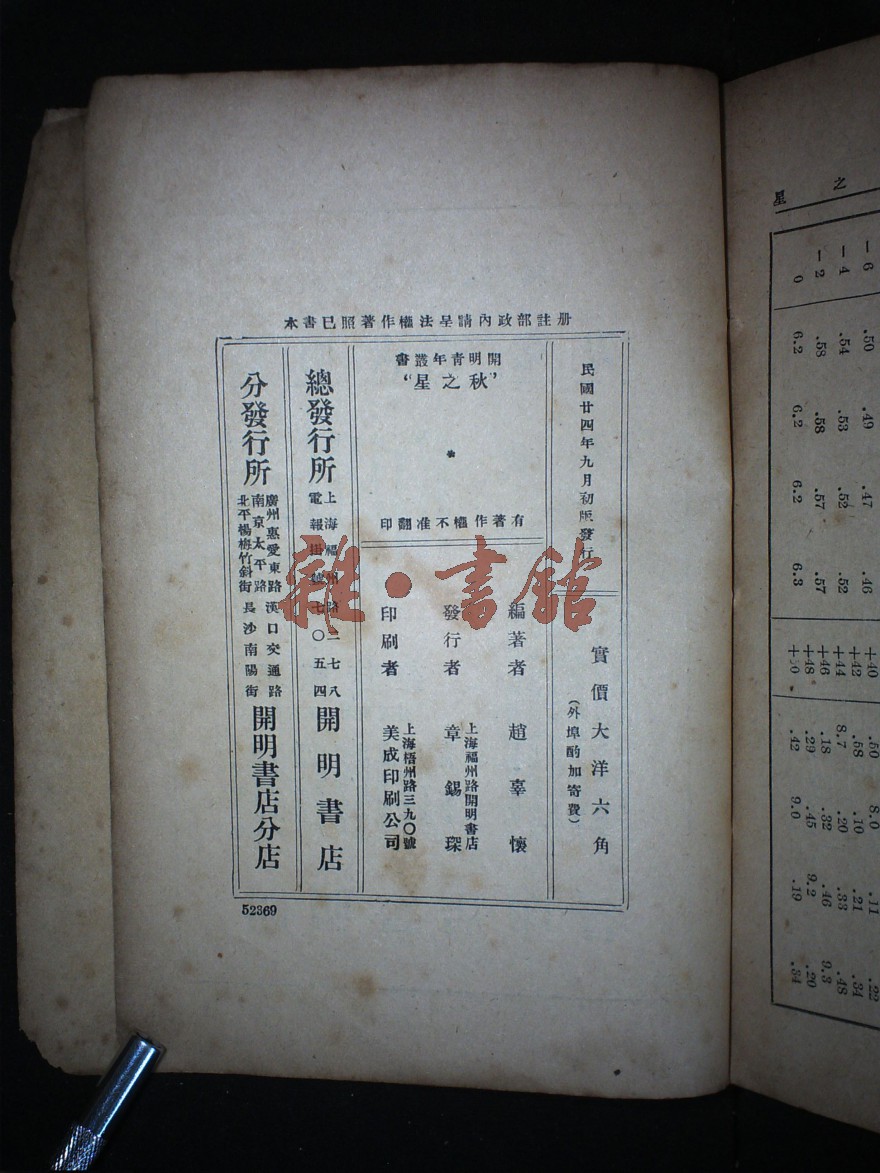 本書已照著作權法呈請內政部註册
民國廿四年九月初版發行
實價大洋六角
(外埠酌加寄費)
開明青年叢書
“秋之星”
有著作權不准翻印
編著者 趙辜懷
發行者 上海福州路開明書店
章錫琛
印刷者 上海梧州路三九〇號
美成印刷公司
總發行所 上海福州路二七八
電報掛號七〇五四
開明書店
分發行所 廣州惠愛東路 漢口交通路
南京太平路
北平楊梅竹斜街 長沙南陽街
開明書店分店
52369
雜·書館
之星
－6 .50 .49 .47 .46 +40 .50 8.0 .11 .22
－4 .54 .53 .52 .52 +42 .58 .10 .21 .34
－2 .58 .58 .57 .57 +44 8.7 .20 .33 .48
0 6.2 6.2 6.2 6.3 +46 .18 .32 .46 9.3
+48 .29 .45 9.2 .20
+50 .42 9.0 .19 .34